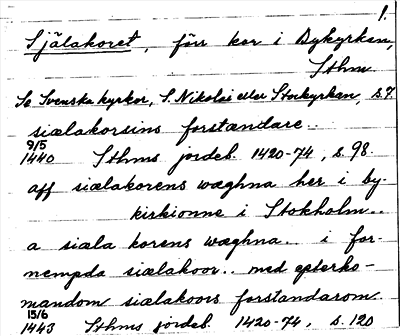 1.
Själakoret, förr kor i Bykyrkan,
Sthm.
Se Svenska kyrkor, S. Nikolai eller Storkyrkan, s. 7.
siælakorsins forstandare..
9/5
1440 Sthms jordeb. 1420-74, s. 98
aff siælakorens wæghna her i by-
kirkionne i Stokholm..
a siæla korens wæghna.. i for-
nempda siælakoor.. med epterko-
mandom siælakoors forstandarom.
15/6
1443 Sthms jordeb. 1420-74, s. 120